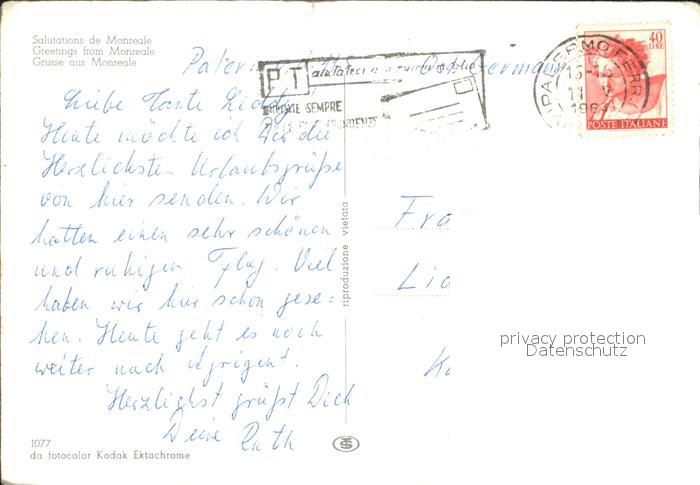 Salutations de Monreale
Greetings from Monreale
Grüsse aus Monreale
Liebe Tante Liddy!
Heute möchte ich Dir die
Herzlichsten Urlaubsgrüße
von hier senden. Wir
hatten einen sehr schönen
und ruhigen Flug. Viel
haben wir hier schon gese=
hen. Heute geht es noch
weiter nach Agrigent.
Herzlichst grüßt Dich
Deine Ruth
1077
da fotocolor Kodak Ektachrome
riproduzione vietata
PT
SEMPRE
Germany
PALERMO FERR
1964
40
LIRE
POSTE ITALIANE
Fra
Lid
K
privacy protection
Datenschutz